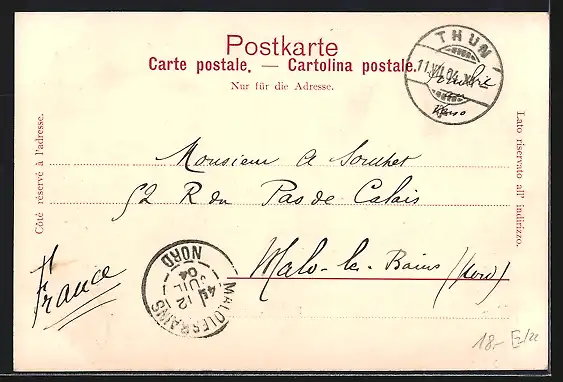 Postkarte
Carte postale. — Cartolina postale.
Nur für die Adresse.
THUN
11.VII.04.
Côté réservé à l'adresse.
Lato riservato all' indirizzo.
Monsieur A Souchet
52 R du Pas de Calais
Malo-les-Bains (Nord)
France
MALO LES BAINS
NORD
12
JUIL
04
18.- E/22